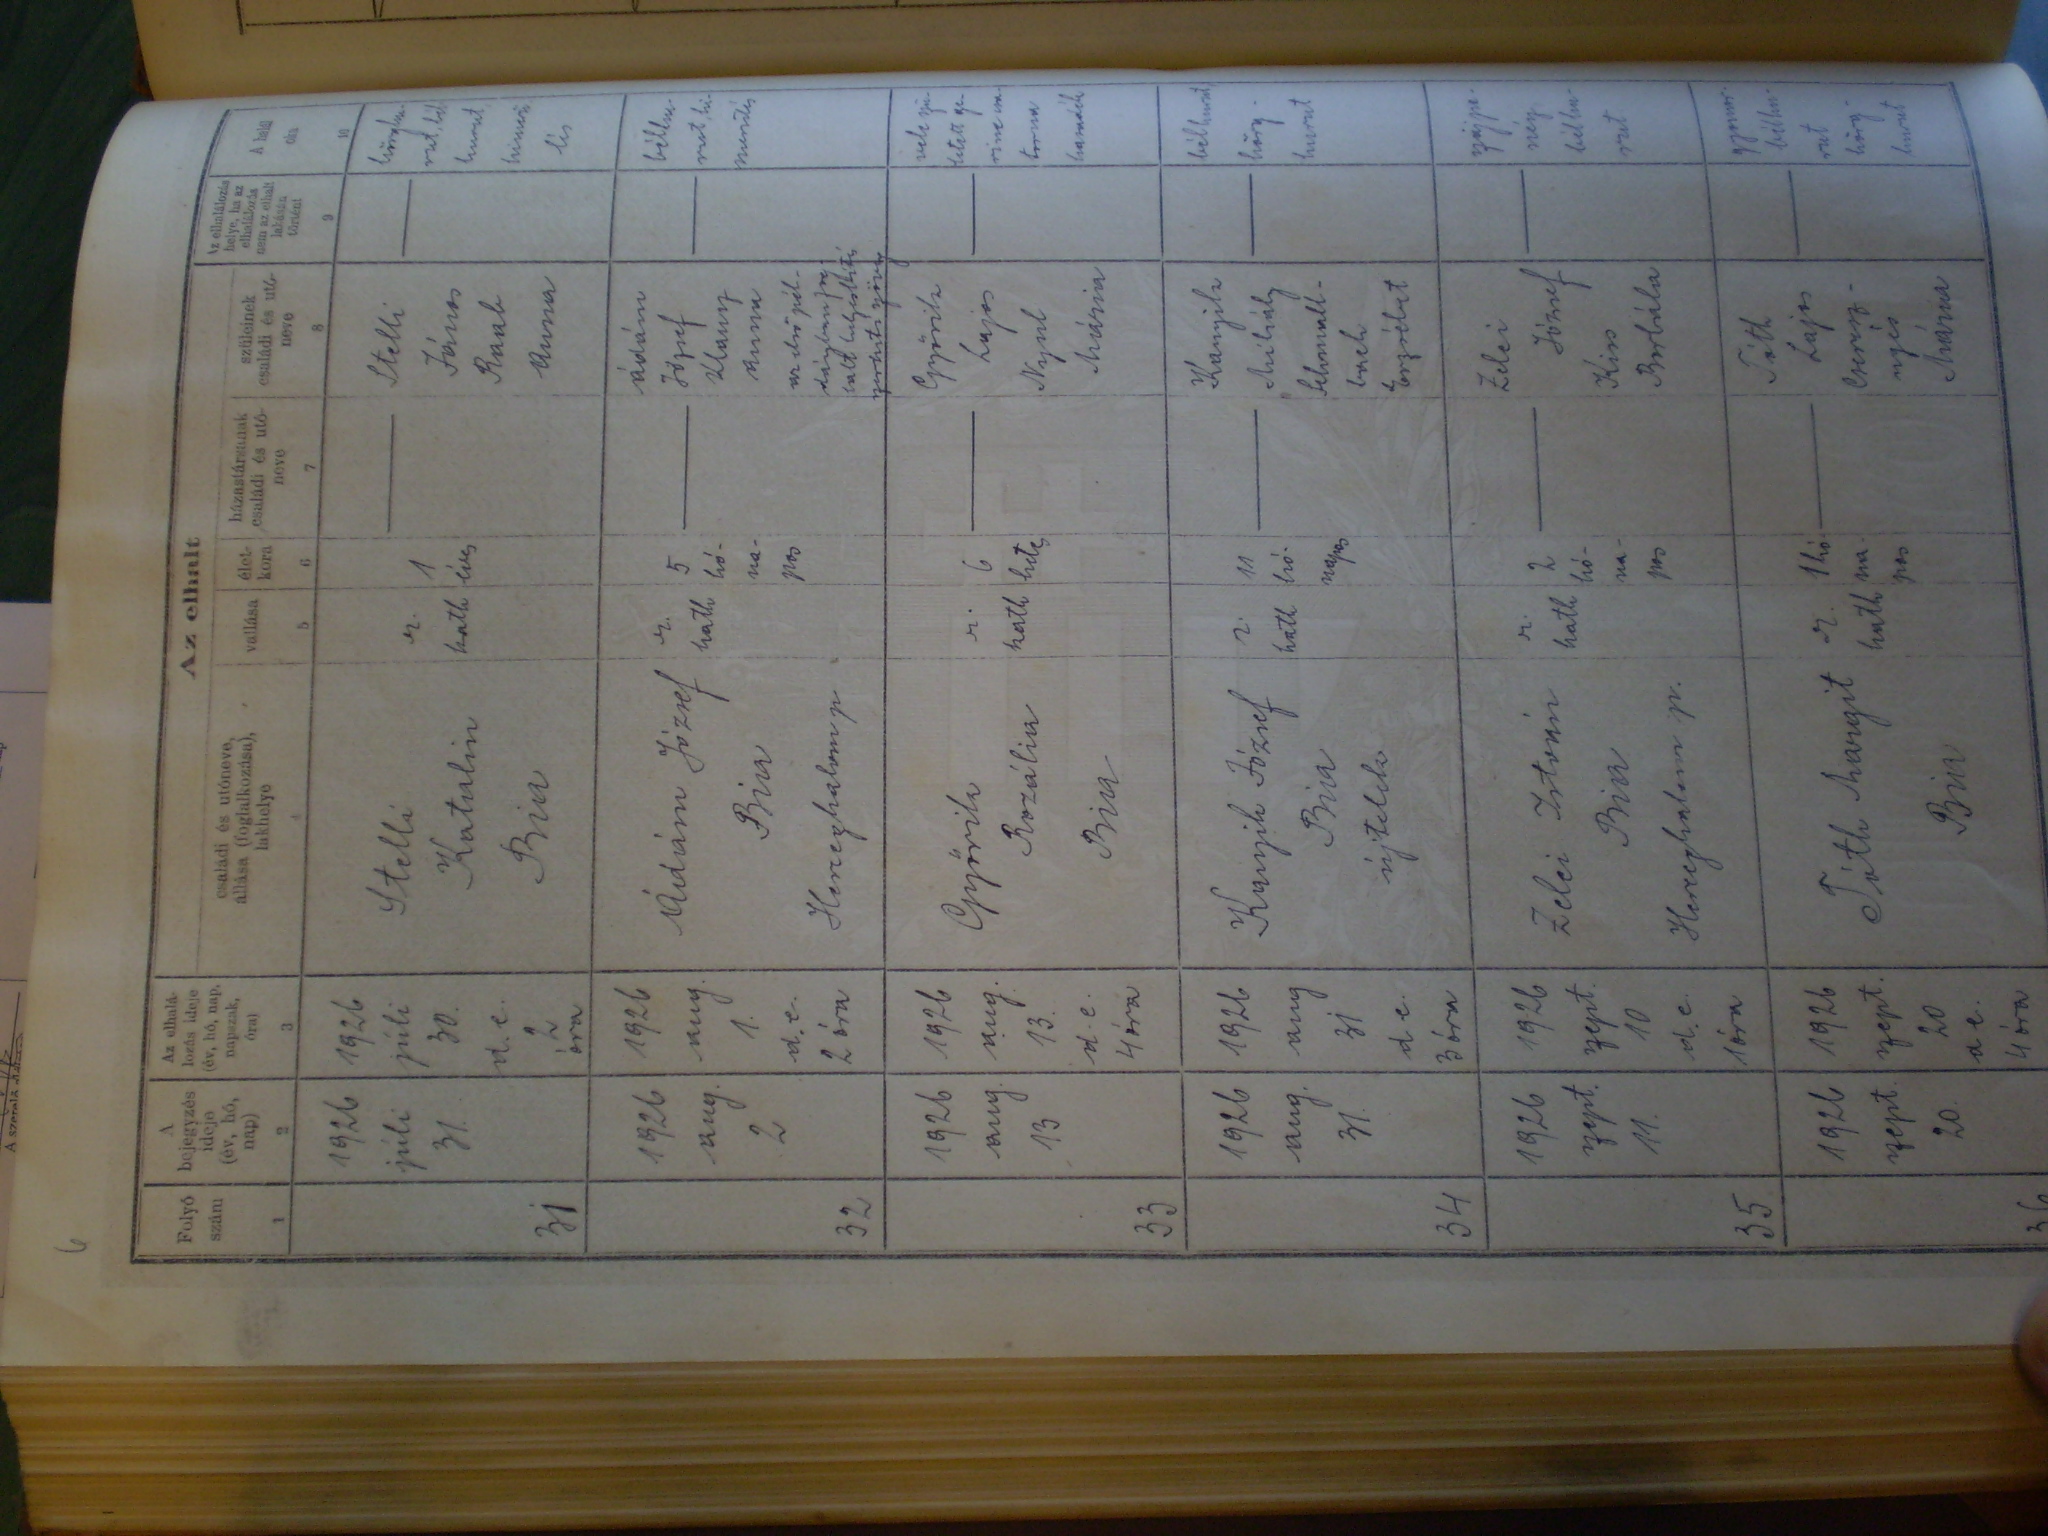 6
Az elhalt
Folyó
szám
A
bejegyzés
ideje
(év, hó,
nap)
Az elhalá-
lozás ideje
(év, hó, nap,
napszak,
óra)
családi és utóneve,
állása (foglalkozása),
lakhelye
vallása
élet-
kora
házastársának
családi és utó-
neve
szüleinek
családi és utó-
neve
Az elhalálozás
helye, ha az
elhalálozás
nem az elhalt
lakásán
történt
A halál
oka
1
2
3
4
5
6
7
8
9
10
31
1926
júli
31.
1926
júli
30.
d. e.
2
óra
Stelli
Katalin
Bia
r.
kath
1
éves
Stelli
János
Raab
Anna
32
1926
aug.
2
1926
aug.
1.
d. e.
2 óra
Ádám József
Bia
Herceghalom p
r.
kath
5
hó-
na-
pos
Ádám
József
Anna
bélhu-
rut, ki-
merülés
33
1926
aug.
13
1926
aug.
13.
d. e.
4 óra
Győrik
Rozália
Bia
r.
kath
6
hetes
Győrik
Lajos
Mária
34
1926
aug.
31.
1926
aug
31
d. e.
3 óra
József
Bia
újtelek
r.
kath
11
hó-
napos
Mihály
Erzsébet
bélhurut,
hörg-
hurut
35
1926
szept.
11.
1926
szept.
10
d. e.
1 óra
Zelei István
Bia
Herceghalom p.
r.
kath
2
hó-
na-
pos
Zelei
József
Kiss
Borbála
bélhu-
rut
36
1926
szept.
20.
1926
szept.
20
d. e.
4 óra
Tóth Margit
Bia
r.
kath
1 hó-
na-
pos
Tóth
Lajos
Cseresz-
nyés
Mária
gyomor-
bélhu-
rut
hörg-
hurut